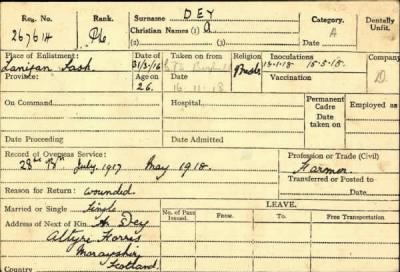 Reg. No. Rank. Surname DEY Category. Dentally Unfit.
267614 Pte. Christian Names (1) A A
(2) (3) Date
Place of Enlistment: Date of Taken on from Religion Inoculations Company
Lanigan Sask 31/3/16 15-5-18. D
Province: Age on Vaccination
26. 16.11.18
On Command Hospital Permanent Cadre Employed as
Date taken on
Date Proceeding Date Admitted
Record of Overseas Service: Profession or Trade (Civil)
July 1917 May 1918. Farmer
Reason for Return: wounded Transferred or Posted to
Married or Single Single LEAVE. Date
Address of Next of Kin A. Dey No. of Pass Issued. From. To. Free Transportation.
Altyre Forris
Morayshire
Scotland.
Country